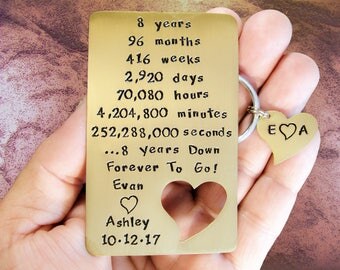 8 years
96 months
416 weeks
2,920 days
70,080 hours
4,204,800 minutes
252,288,000 seconds
...8 Years Down
Forever To Go!
Evan
♡
Ashley
10.12.17
E♡A